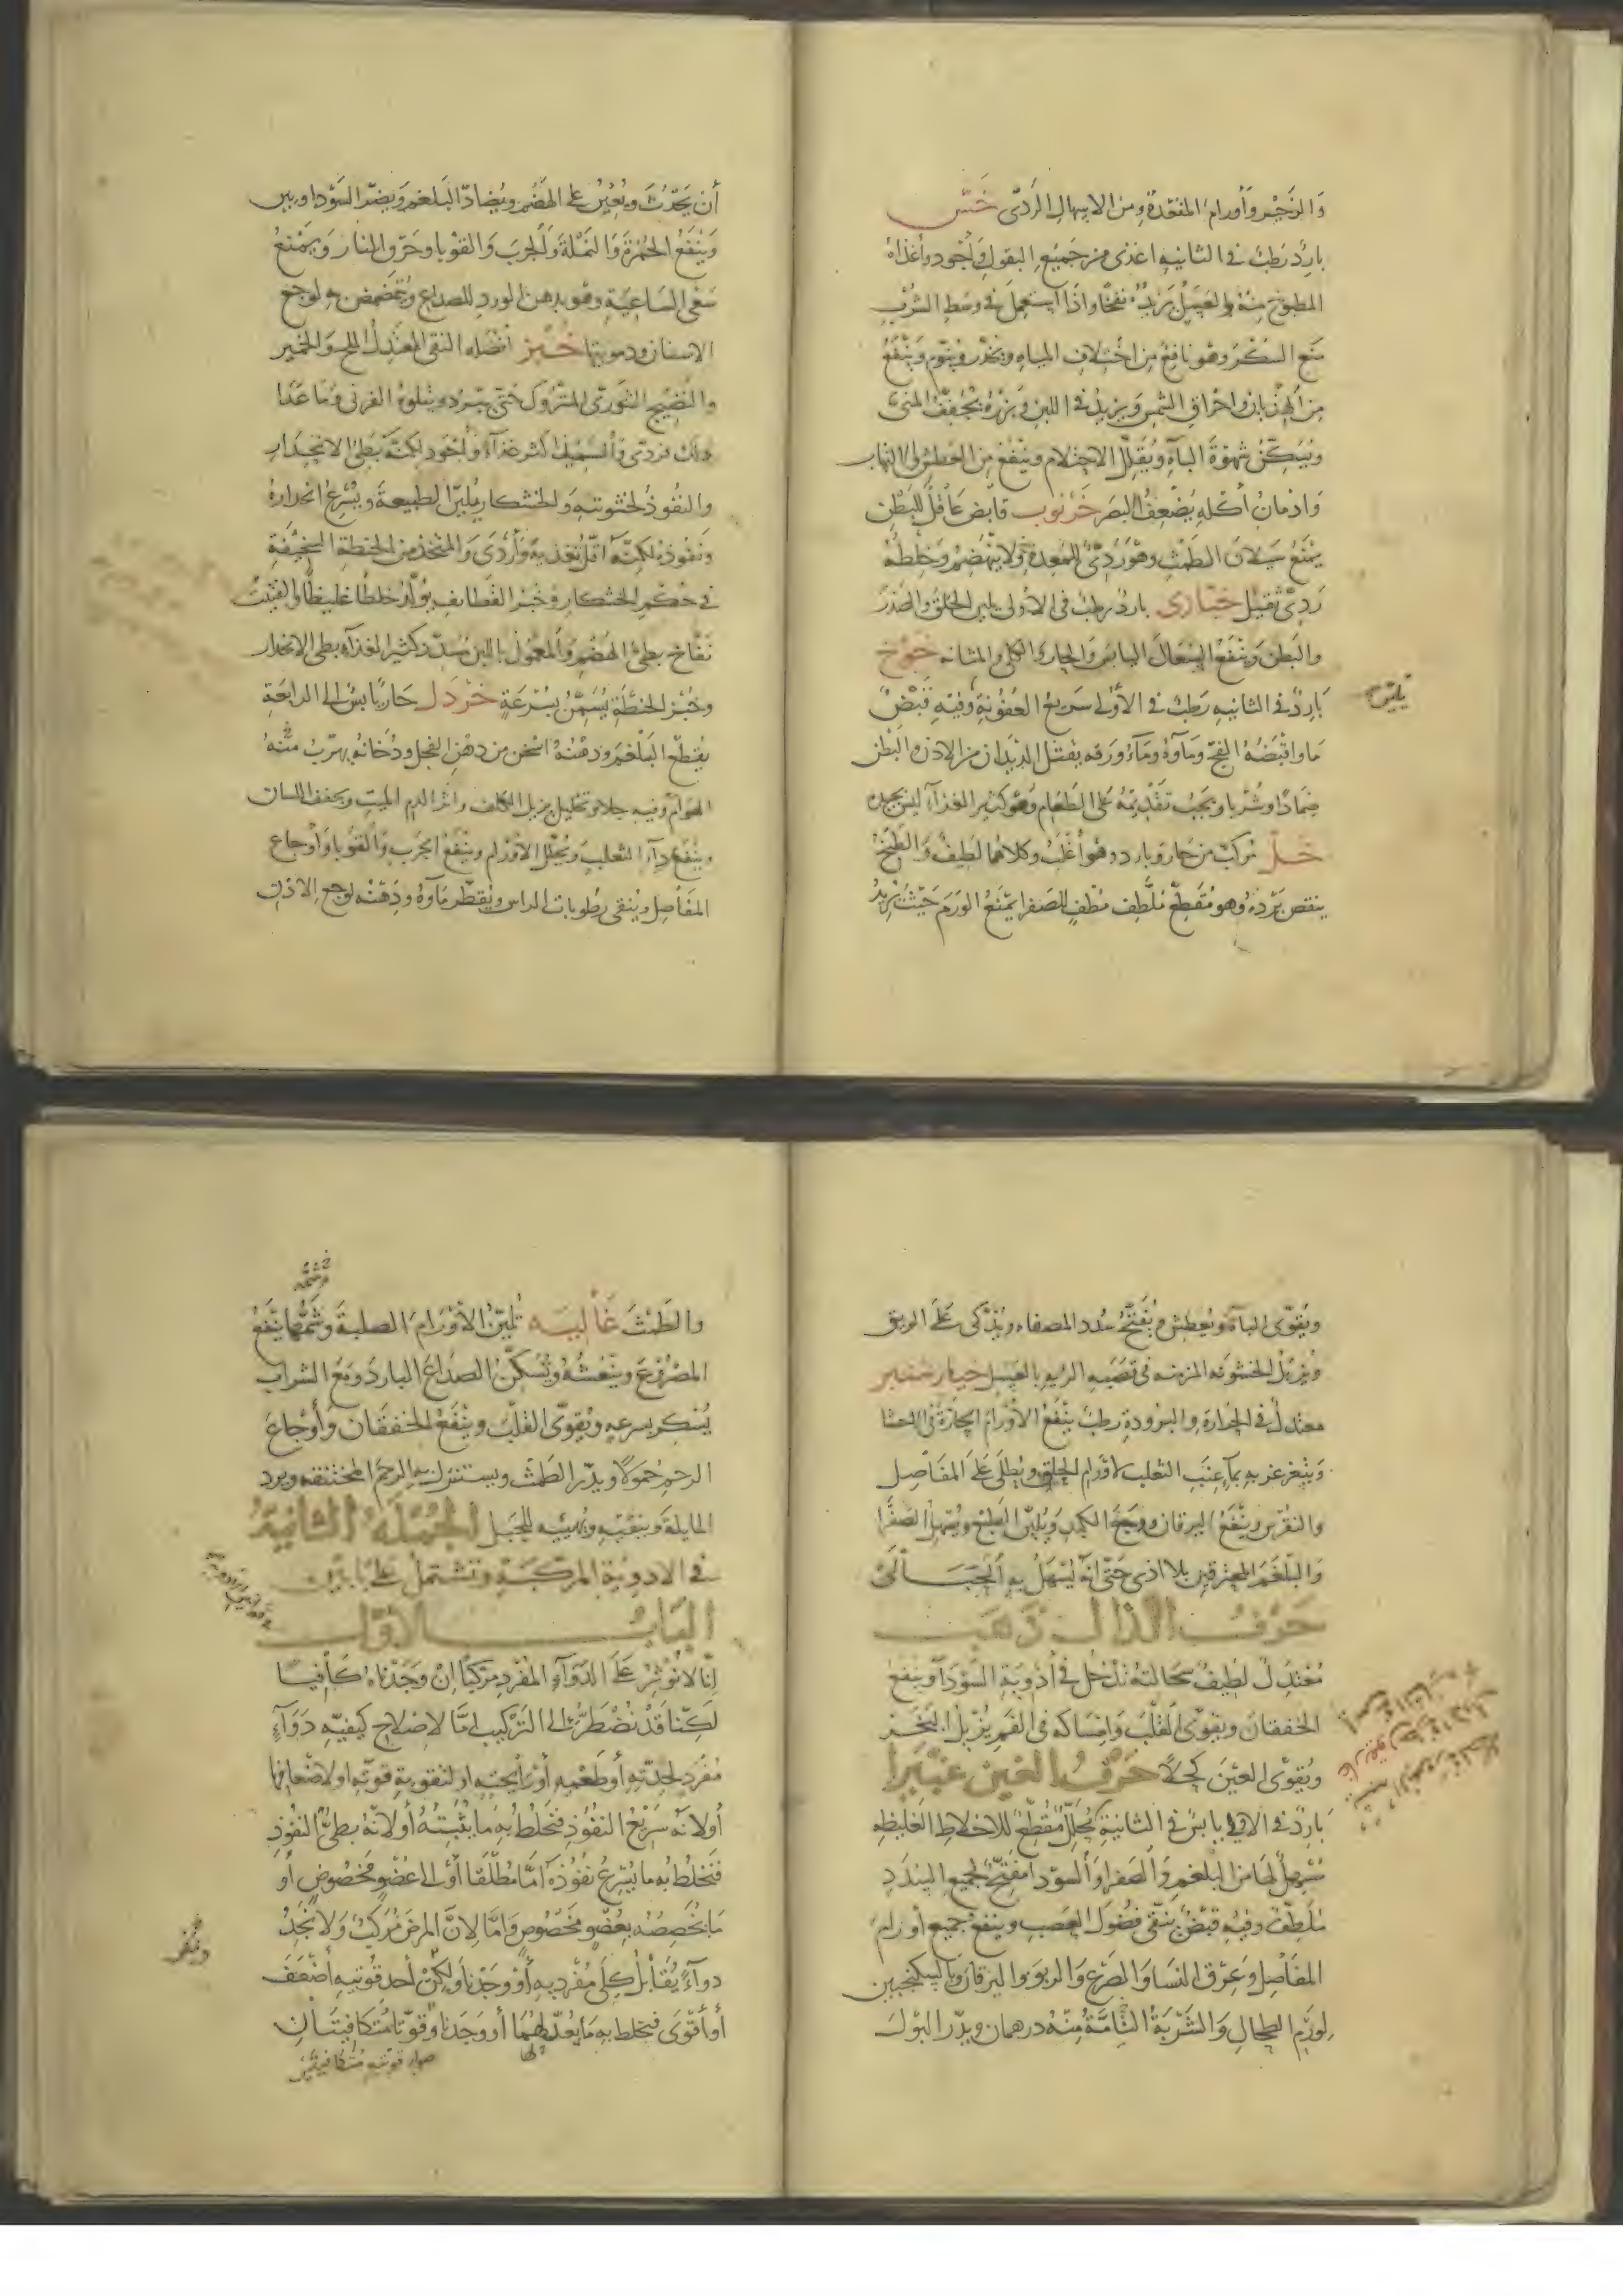 والزحير وأورام المقعدة ومن الاسهال الردى خس
بارد رطب فى الثانيه اغذى من جميع البقول وأجود وأغذاه
المطبوخ منه والغسل يزيده نفخا واذا استعمل فى وسط الشرب
منع السكر وهو نافع من اختلاف المياه ويخدر وينوم وينفع
من الهذيان واحراق الشمس ويزيد فى اللبن وبزره يجفف المنى
ويسكن شهوة الباه ويقلل الاحتلام وينفع من العطش والالتهاب
وادمان أكله يضعف البصر خرنوب قابض عاقل للبطن
يمنع سيلان الطمث وهو ردئ للمعدة ولا ينهضم وخلطه
ردئ ثقيل خبازى بارد رطب فى الاولى يلين الحلق والصدر
والبطن وينفع السعال اليابس والحار والكلى والمثانه خوخ
بارد فى الثانيه رطب فى الأولى سريع العفونة وفيه قبض
ما واقبضه الفج وماؤه وماء ورقه يقتل الديدان من الاذن والبطن
ضمادا وشربا ويجب تقديمه على الطعام وهو كثير الغذاء ليس بجيده
خل مركب من حار وبارد وهو أغلب وكلاهما لطيف والطبخ
ينقص برده وهو مقطع ملطف مطفئ للصفرا يمنع الورم حيث يريد
أن يحدث ويعين على الهضم ويضاد البلغم ويضر السوداويين
وينفع الحمرة والنملة والجرب والقوبا وحرق النار ويمنع
سعى الساعية وهو بدهن الورد للصداع ويتمضمض به لوجع
الاسنان ودمويتها خبز أفضله النقى المعتدل الملح والخمير
والنضيج التنورى المتروك حتى يبرد ويتلوه الفرنى وما عدا
ذلك فردئ والسميد أكثر غذاء وأجود لكنه بطئ الانحدار
والنفوذ لخشونته والخشكار يلين الطبيعة ويسرع انحداره
ونفوذه لكنه أقل تغذية وأردى والمتخذ من الحنطة السخيفة
فى حكم الخشكار وخبز القطايف يولد خلطا غليظا والفتيت
نفاخ بطئ الهضم والمعمول باللبن مسدد كثير الغذاء بطى الانحدار
وخبز الحنطة يسمن بسرعة خردل حار يابس الى الرابعة
يقطع البلغم ودهنه اسخن من دهن الفجل ودخانه يهرب منه
الهوام وفيه جلاء وتحليل يزيل الكلف واثر الدم الميت ويجفف اللسان
وينفع داء الثعلب ويحلل الاورام وينفع الجرب والقوبا وأوجاع
المفاصل وينقى رطوبات الراس ويقطر ماؤه ودهنه لوجع الاذن
ويقوى الباه ويعطش ويفتح سدد المصفاه ويذكى على الريق
ويزيل الخشونه المزمنه فى قصبه الريه بالعسل خيار شنبر
معتدل فى الحرارة والبرودة رطب ينفع الأورام الحارة فى الاحشا
ويتغرغر به بماء عنب الثعلب لاورام الحلق ويطلى على المفاصل
والنقرس وينفع اليرقان ووجع الكبد ويلين الطبع ويسهل الصفرا
والبلغم المحترقين بلا اذى حتى أنه ليسهل به الحبالى
حرف الذال ذهب
معتدل لطيف سحالته تدخل فى أدوية السوداء وينفع
الخفقان ويقوى القلب وامساكه فى الفم يزيل البخر
ويقوى العين كحلا حرف الغين
بارد فى الاولى يابس فى الثانية محلل مقطع للاخلاط الغليظه
مسهل لها من البلغم والصفرا والسودا مفتح لجميع السدد
ملطف وفيه قبض ينقى فضول العصب وينفع جميع أورام
المفاصل وعرق النسا والصرع والربو واليرقان وبالسكنجبين
لورم الطحال والشربة التامة منه درهمان ويدر البول
والطمث غاليه تلين الأورام الصلبة وشمها ينفع
المصروع وينعشه ويسكن الصداع البارد ومع الشراب
يسكر بسرعه ويقوى القلب وينفع الخفقان وأوجاع
الرحم حمولا ويدر الطمث ويستنزل به الرحم المختنقه ويرد
المايلة وينقيه ويهيئه للحبل الجملة الثانية
فى الادوية المركبة وتشتمل على بابين
الباب الاول
انا لا نوثر على الدواء المفرد مركبا ان وجدناه كافيا
لكنا قد نضطر الى التركيب اما لاصلاح كيفية دواء
مفرد لحدته أو طعمه أو رائحته او لتقوية قوته او لاضعافها
أو لانه سريع النفوذ فنخلط به ما يثبته أو لانه بطئ النفوذ
فنخلط به ما يسرع نفوذه اما مطلقا أو الى عضو مخصوص أو
ما يخصصه بعضو مخصوص واما لان المرض مركب ولا نجد
دواء يقابل كلى مفرديه أو وجدنا ولكن أحد قوتيه أضعف
أو أقوى فنخلط به ما يعدلهما أو وجدنا وقوتا متكافيتان
صوابه قوتيه متكافيتين